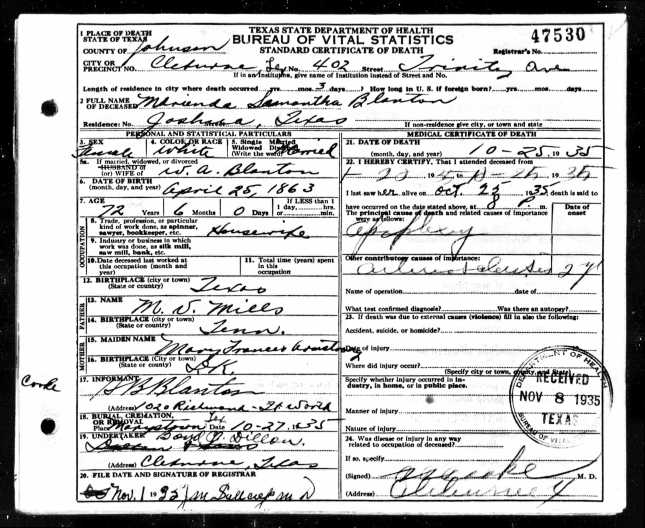 TEXAS STATE DEPARTMENT OF HEALTH
BUREAU OF VITAL STATISTICS
STANDARD CERTIFICATE OF DEATH
47530
Registrar's No.
1 PLACE OF DEATH
STATE OF TEXAS
COUNTY OF Johnson
CITY OR PRECINCT NO. Cleburne, No. 402 Street Trinity Ave
If in an institution, give name of institution instead of Street and No.
Length of residence in city where death occurred yrs. mos. 3 days? How long in U. S. if foreign born? yrs. mos. days
2 FULL NAME OF DECEASED Samantha Blanton
Residence: No. Joshua, Texas
If non-residence give city, or town and state
PERSONAL AND STATISTICAL PARTICULARS
3. SEX Female
4. COLOR OR RACE White
5. Single Married Widowed Divorced (Write the word) Married
5a. If married, widowed, or divorced HUSBAND OF (or) WIFE of W. A. Blanton
6. DATE OF BIRTH (month, day, and year) April 25, 1863
7. AGE 72 Years 6 Months 0 Days If LESS than 1 day, hrs. or min.
OCCUPATION
8. Trade, profession, or particular kind of work done, as spinner, sawyer, bookkeeper, etc. Housewife
9. Industry or business in which work was done, as silk mill, saw mill, bank, etc.
10. Date deceased last worked at this occupation (month and year)
11. Total time (years) spent in this occupation
12. BIRTHPLACE (City or town) (State or country) Texas
FATHER
13. NAME Mills
14. BIRTHPLACE (City or town) (State or country) Tenn.
MOTHER
15. MAIDEN NAME Mary Frances
16. BIRTHPLACE (City or town) (State or country) D.K.
Cooke
17. INFORMANT Blanton
(Address) 1020
18. BURIAL, CREMATION, OR REMOVAL
Place Marystown Date 10-27 1935
19. UNDERTAKER Dillon
(Address) Cleburne, Texas
20. FILE DATE AND SIGNATURE OF REGISTRAR
Nov. 1 1935
MEDICAL CERTIFICATE OF DEATH
21. DATE OF DEATH (month, day, and year) 10-25 1935
22. I HEREBY CERTIFY, That I attended deceased from
I last saw her alive on Oct. 25 1935 death is said to
have occurred on the date stated above, at 8
The principal cause of death and related causes of importance were as follows:
Date of onset
Apoplexy
Other contributory causes of importance:
Name of operation date of
What test confirmed diagnosis? Was there an autopsy?
23. If death was due to external causes (violence) fill in also the following:
Accident, suicide, or homicide?
Date of injury
Where did injury occur?
(Specify city or town, county, and State)
Specify whether injury occurred in industry, in home, or in public place.
Manner of injury
Nature of injury
24. Was disease or injury in any way related to occupation of deceased?
If so, specify
(Signed) Cooke M. D.
(Address)
DEPARTMENT OF HEALTH
RECEIVED
NOV 8 1935
TEXAS
BUREAU OF